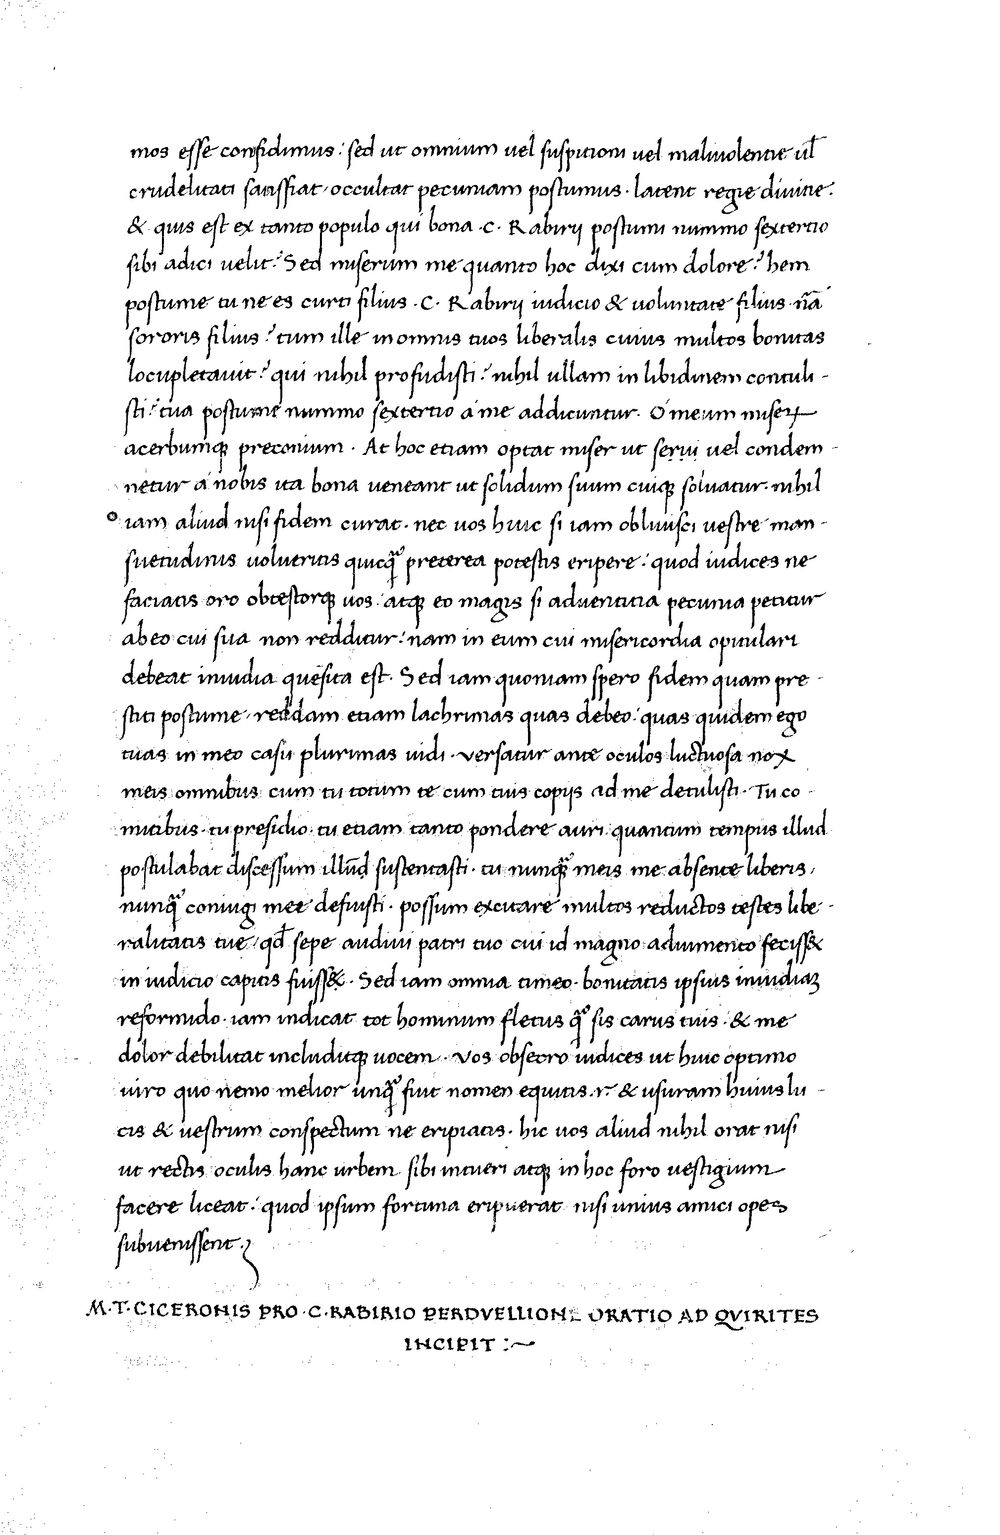 mos esse confidimus: sed ut omnium uel suspitioni uel maliuolentie ul̅
crudelitati satisfiat, occultat pecuniam postumus. latent regie diuitie.
& quis est ex tanto populo qui bona .C. Rabirij postumi nummo sextertio
sibi adici uelit? Sed miserum me quanto hoc dixi cum dolore? hem
postume tu ne es curti filius .C. Rabirij iudicio & uoluntate filius n̅a̅
sororis filius? tum ille in omnis tuos liberalis cuius multos bonitas
locupletauit? qui nihil profudisti? nihil ullam in libidinem contuli-
sti? tua postume nummo sextertio a me addicuntur. O meum miseꝝ
acerbumqꝫ preconium. At hoc etiam optat miser ut serui uel condem-
netur a nobis ita bona ueneant ut solidum suum cuiqꝫ soluatur. nihil
iam aliud nisi fidem curat. nec uos huic si iam obliuisci uestre man-
suetudinis uolueritis quicqᷓ preterea potestis eripere: quod iudices ne
faciatis oro obtestorqꝫ uos: atqꝫ eo magis si aduenticia pecunia petitur
ab eo cui sua non redditur: nam in eum cui misericordia opitulari
debeat inuidia quesita est. Sed iam quoniam spero fidem quam pre-
stiti postume, reddam etiam lachrimas quas debeo: quas quidem ego
tuas in meo casu plurimas uidi. versatur ante oculos luctuosa nox
meis omnibus cum tu totum te cum tuis copijs ad me detulisti. Tu co-
mitibus. tu presidio. tu etiam tanto pondere auri quantum tempus illud
postulabat discessum illud sustentasti. tu nunqᷓ meis me absente liberis,
nunqᷓ coniugi mee defuisti. possum excitare multos reductos testes libe-
ralitatis tue, qd̅ sepe audiui patri tuo cui id magno adiumento feciss&
in iudicio capitis fuiss&. Sed iam omnia timeo. bonitatis ipsius inuidiaꝫ
reformido. iam indicat tot hominum fletus qᷓ sis carus tuis. & me
dolor debilitat includitqꝫ uocem. Vos obsecro iudices ut huic optimo
uiro quo nemo melior unqᷓ fuit nomen equitis .r. & usuram huius lu-
cis & uestrum conspectum ne eripiatis. hic uos aliud nihil orat nisi
ut rectis oculis hanc urbem sibi intueri atqꝫ in hoc foro uestigium
facere liceat: quod ipsum fortuna eripuerat nisi unius amici opes
subuenissent.
M.T.CICERONIS PRO .C. RABIRIO PERDVELLIONE ORATIO AD QVIRITES
INCIPIT :~